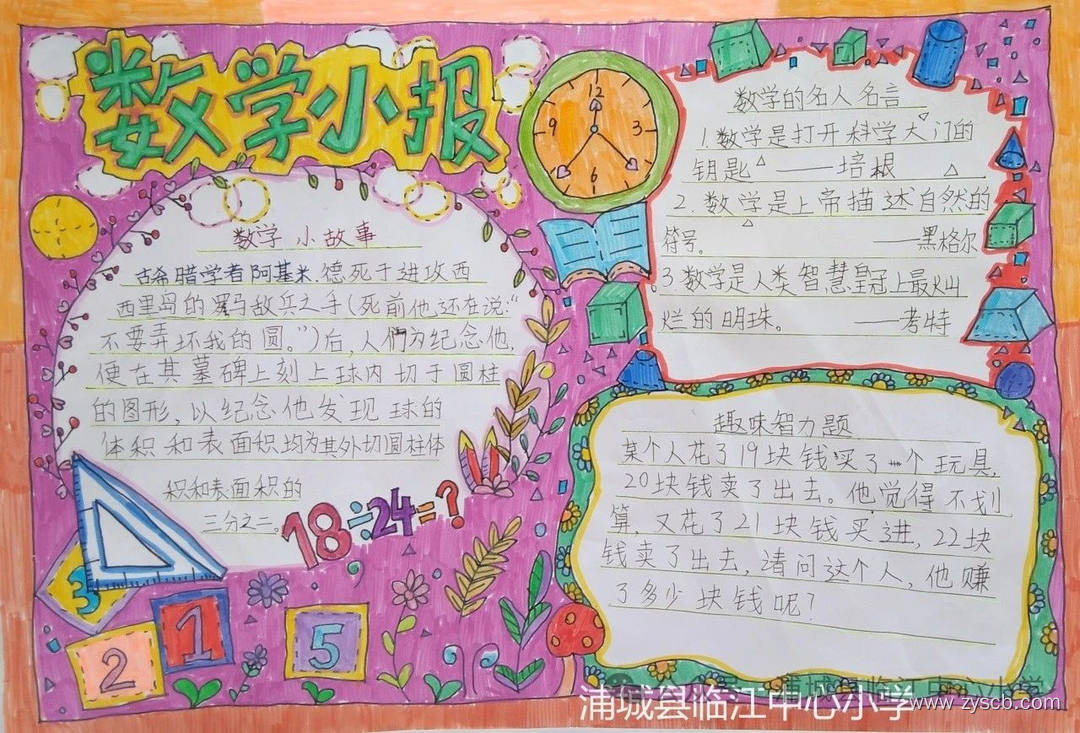 数学小报
数学小故事
古希腊学者阿基米德死于进攻西
西里岛的罗马敌兵之手(死前他还在说:“
不要弄坏我的圆。”)后,人们为纪念他,
便在其墓碑上刻上球内切于圆柱
的图形,以纪念他发现球的
体积和表面积均为其外切圆柱体
积和表面积的
三分之二。
18÷24=?
3
1
2
5
12
3
6
9
数学的名人名言
1.数学是打开科学大门的
钥匙——培根
2 数学是上帝描述自然的
符号。——黑格尔
3 数学是人类智慧皇冠上最灿
烂的明珠。——考特
趣味智力题
某个人花了19块钱买了一个玩具,
20块钱卖了出去。他觉得不划
算,又花了21块钱买进,22块
钱卖了出去,请问这个人,他赚
了多少块钱呢?
浦城县临江中心小学
www.zyscb.com